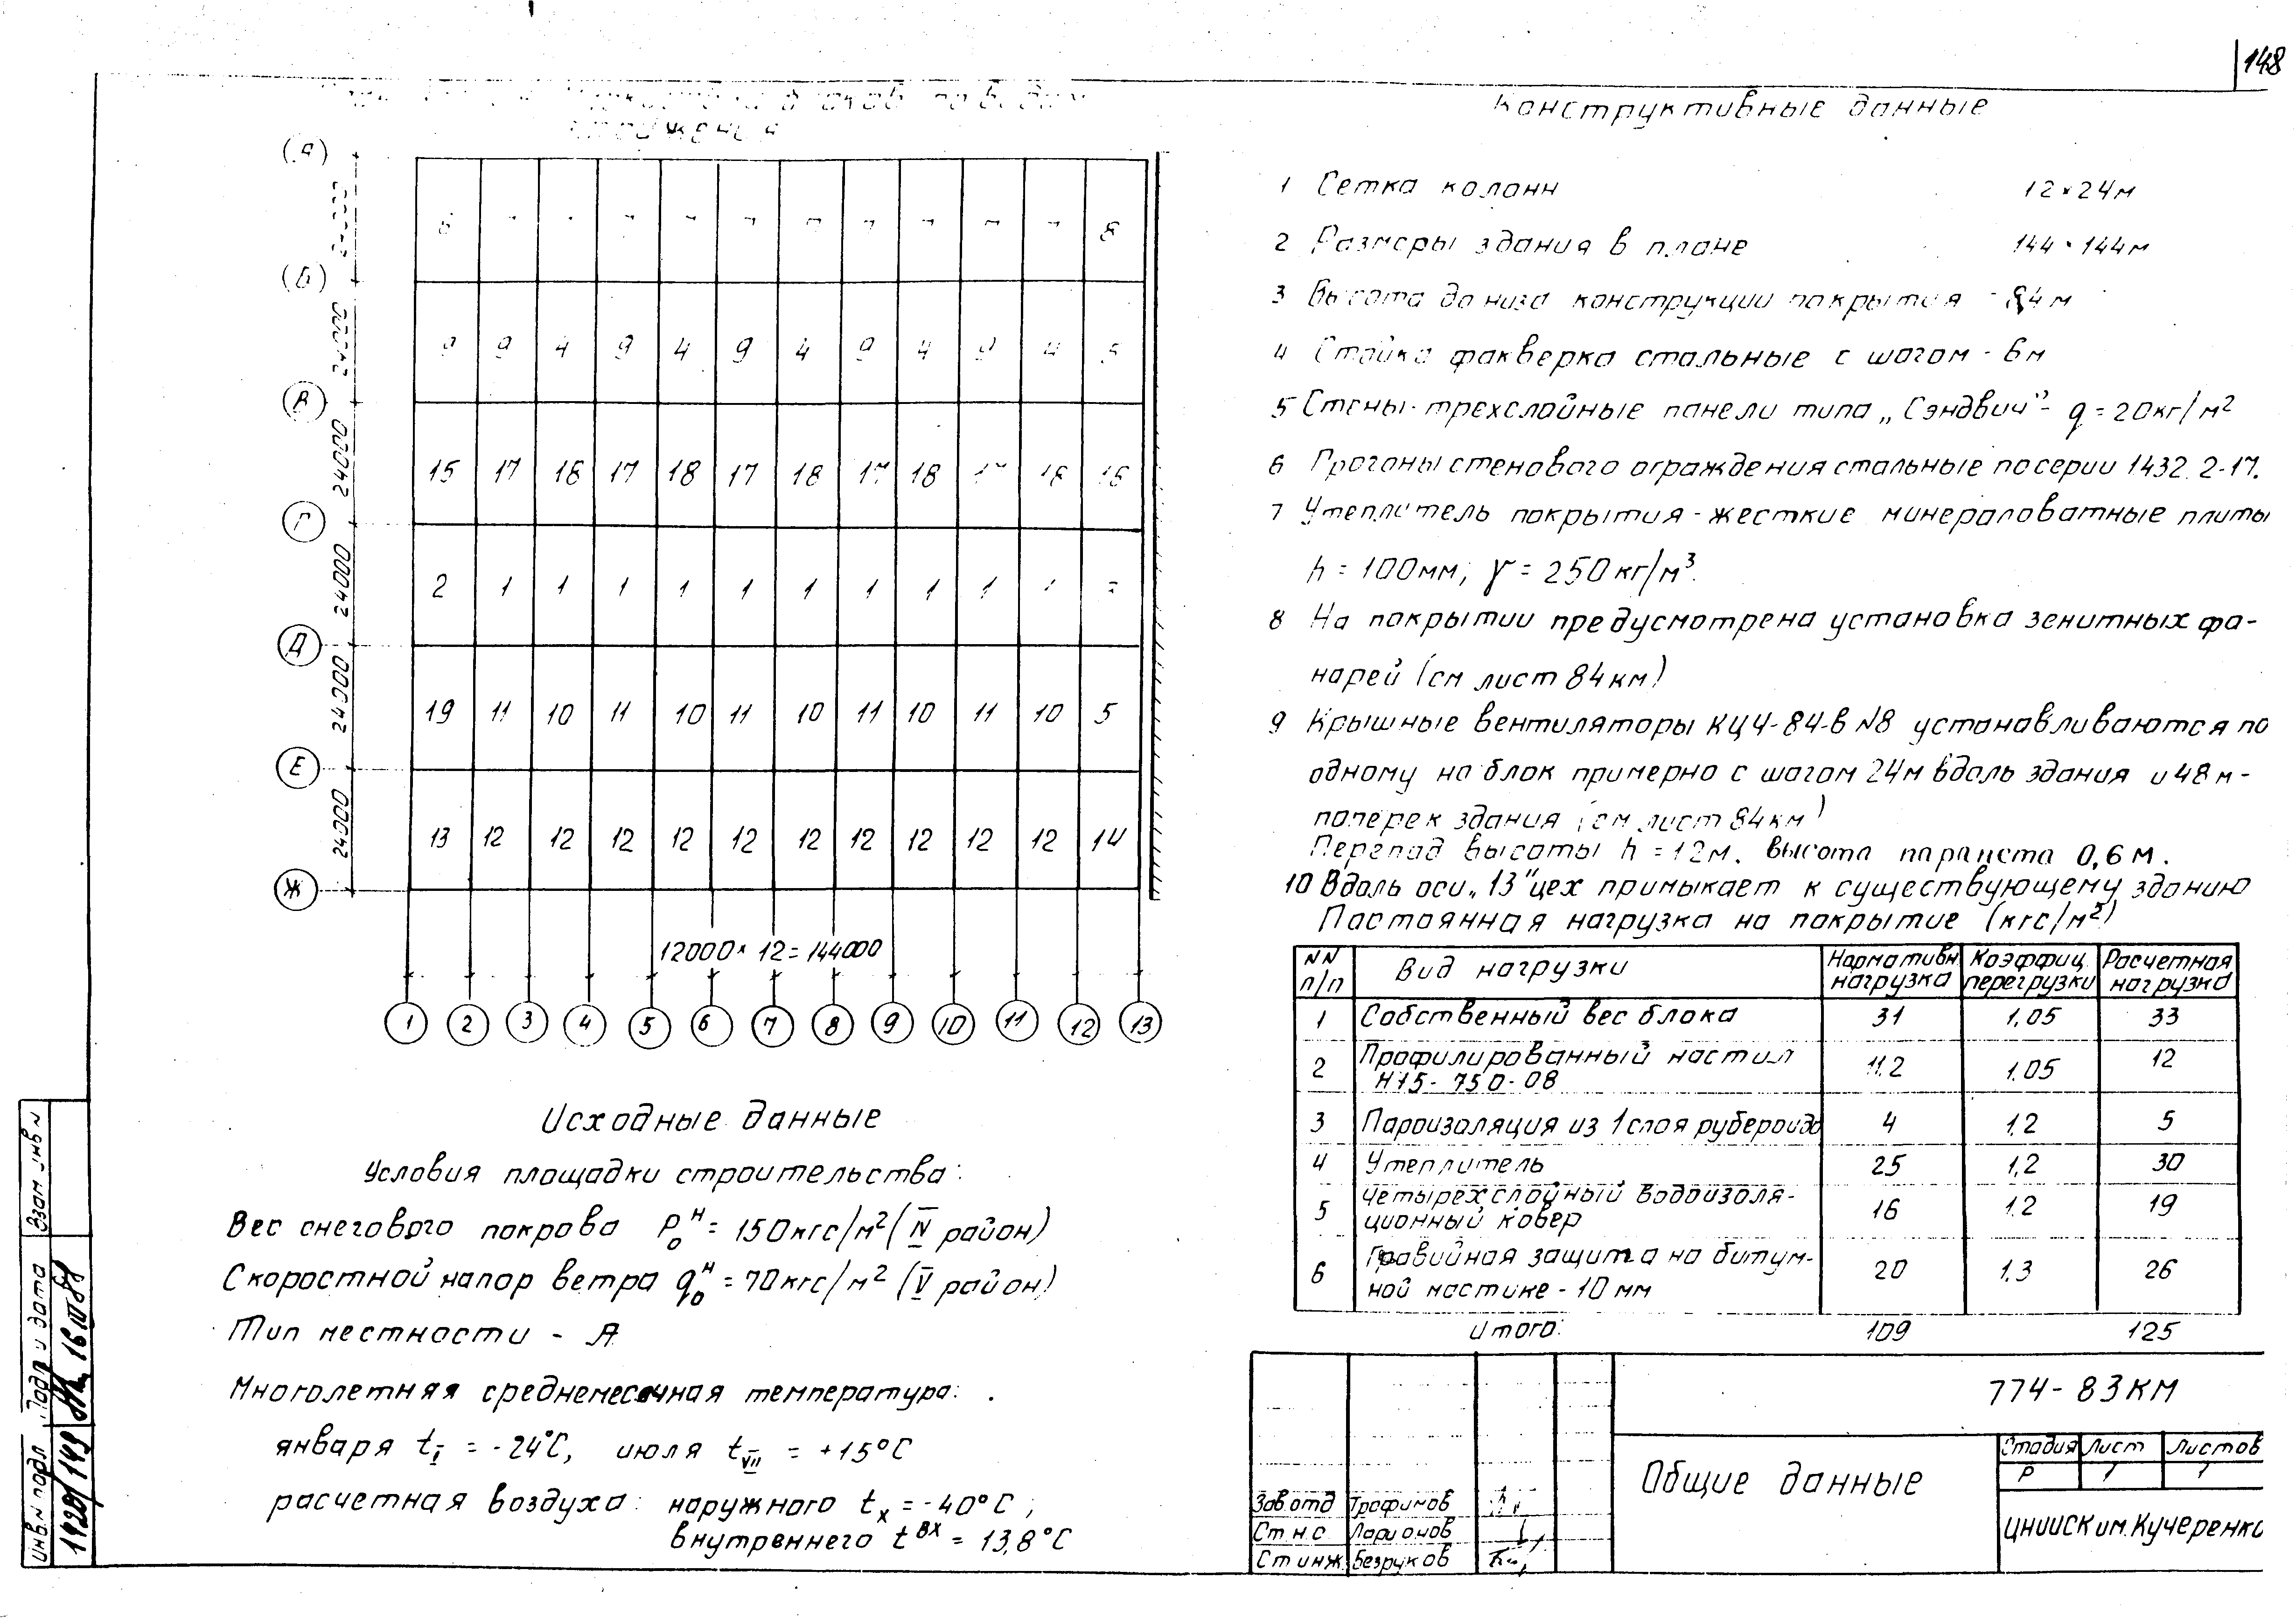 148
(А)
(Б)
В
Г
Д
Е
Ж
24000
24000
24000
24000
24000
8
9 9 4 9 4 9 4 9 4 9 4 5
15 17 18 17 18 17 18 17 18
2 1 1 1 1 1 1 1 1 1
19 11 10 11 10 11 10 11 10 11 10 5
13 12 12 12 12 12 12 12 12 12 12 14
12000×12=144000
1 2 3 4 5 6 7 8 9 10 11 12 13
Исходные данные
Условия площадки строительства:
Вес снегового покрова P₀ᴴ = 150кгс/м² (IV район)
Скоростной напор ветра q₀ᴴ = 70кгс/м² (V район)
Тип местности - А
Многолетняя среднемесячная температура:
января t_I = -24°С, июля t_VII = +15°С
расчетная воздуха: наружного t_х = -40°С;
внутреннего t^вх = 13,8°С
Конструктивные данные
1 Сетка колонн 12×24м
2 Размеры здания в плане 144×144м
3 Высота до низа конструкции покрытия - 8,4м
4 Стойки фахверка стальные с шагом - 6м
5 Стены-трехслойные панели типа „Сэндвич"- q=20кг/м²
6 Прогоны стенового ограждения стальные по серии 1432.2-17.
7 Утеплитель покрытия-жесткие минераловатные плиты
h=100мм; γ=250кг/м³.
8 На покрытии предусмотрена установка зенитных фо-
нарей (см лист 84км)
9 Крышные вентиляторы КЦ4-84-в N8 устанавливаются по
одному на блок примерно с шагом 24м вдоль здания и 48м-
поперек здания (см лист 84км)
Перепад высоты h=12м. Высота парапета 0,6м.
10 Вдоль оси „13" цех примыкает к существующему зданию
Постоянная нагрузка на покрытие (кгс/м²)
NN п/п Вид нагрузки Нормативн. нагрузка Коэффиц. перегрузки Расчетная нагрузка
1 Собственный вес блока 31 1,05 33
2 Профилированный настил Н75-750-08 11.2 1.05 12
3 Пароизоляция из 1 слоя рубероида 4 1.2 5
4 Утеплитель 25 1,2 30
5 Четырехслойный водоизоля-
ционный ковер 16 1.2 19
6 Гравийная защита на битум-
ной мастике - 10 мм 20 1.3 26
Итого: 109 125
774-83КМ
Общие данные
Стадия Лист Листов
Р 1 1
ЦНИИСК им. Кучеренко
Зав.отд Трофимов
Ст.н.с. Ларионов
Ст инж. Безруков
Взам. инв N
Подп. и дата
16 III 84
Инв.N подл.